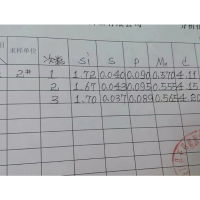 来样单位 次数 Si S P Mn
2# 1 1.72 0.040 0.090 0.370 4.11
2 1.67 0.043 0.095 0.555 4.15
3 1.70 0.037 0.089 0.565 4.20